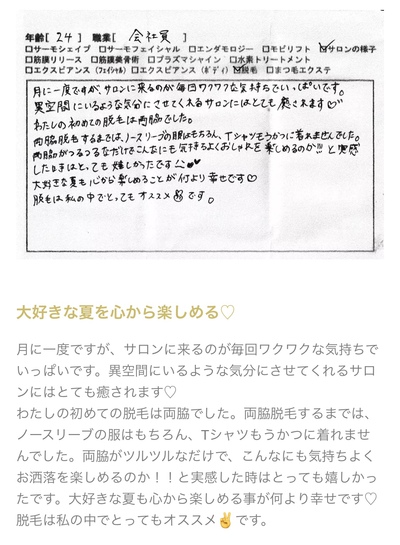 年齢[ 24 ] 職業[ 会社員 ]
□サーモシェイプ □サーモフェイシャル □エンダモロジー □モビリフト ☑サロンの様子
□筋膜リリース □筋膜美骨術 □プラズマシャイン □水素トリートメント
□エクスピアンス(フェイシャル) □エクスピアンス(ボディ) ☑脱毛 □まつ毛エクステ
月に一度ですが、サロンに来るのが毎回ワクワクな気持ちでいっぱいです。
異空間にいるような気分にさせてくれるサロンにはとても癒されます♡
わたしの初めての脱毛は両脇でした。
両脇脱毛するまでは、ノースリーブの服はもちろん、Tシャツもうかつに着れませんでした。
両脇がつるつるなだけで、こんなにも気持ちよくおしゃれを楽しめるのか!!! と実感
した時はとっても嬉しかったです
大好きな夏も心から楽しめることが何より幸せです♡
脱毛は私の中でとってもオススメ✌です。
大好きな夏を心から楽しめる♡
月に一度ですが、サロンに来るのが毎回ワクワクな気持ちで
いっぱいです。異空間にいるような気分にさせてくれるサロ
ンにはとても癒されます♡
わたしの初めての脱毛は両脇でした。両脇脱毛するまでは、
ノースリーブの服はもちろん、Tシャツもうかつに着れませ
んでした。両脇がツルツルなだけで、こんなにも気持ちよく
お洒落を楽しめるのか！！と実感した時はとっても嬉しかっ
たです。大好きな夏も心から楽しめる事が何より幸せです♡
脱毛は私の中でとってもオススメ✌です。